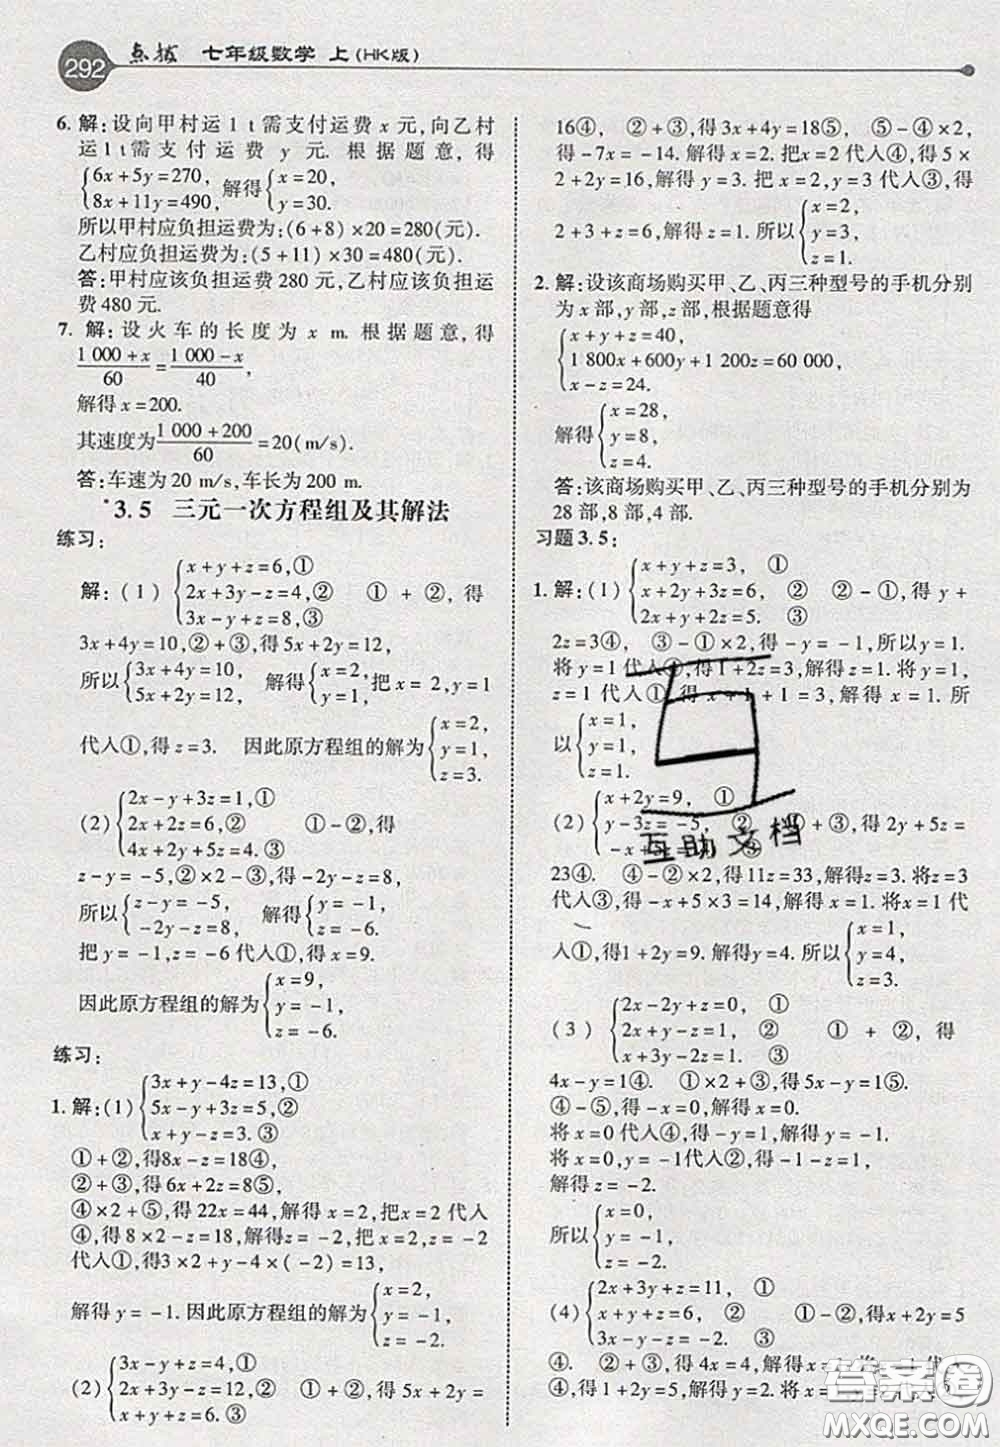 292 点拨 七年级数学 上(HK版)
6. 解:设向甲村运 1 t 需支付运费 x 元,向乙村
运 1 t 需支付运费 y 元. 根据题意, 得
{6x+5y=270,
8x+11y=490, 解得{x=20,
y=30.
所以甲村应负担运费为:(6+8)×20=280(元).
乙村应负担运费为:(5+11)×30=480(元).
答:甲村应该负担运费 280 元,乙村应该负担运
费 480 元.
7. 解:设火车的长度为 x m. 根据题意,得
(1 000+x)/60=(1 000-x)/40,
解得 x=200.
其速度为(1 000+200)/60=20(m/s).
答:车速为 20 m/s,车长为 200 m.
*3.5 三元一次方程组及其解法
练习:
解:(1){x+y+z=6,①
2x+3y-z=4,② ①+②,得
3x-y+z=8,③
3x+4y=10,②+③,得5x+2y=12,
所以{3x+4y=10,
5x+2y=12, 解得{x=2,
y=1, 把 x=2,y=1
代人①,得 z=3. 因此原方程组的解为{x=2,
y=1,
z=3.
(2){2x-y+3z=1,①
2x+2z=6,② ①-②,得
4x+2y+5z=4.③
z-y=-5,②×2-③,得-2y-z=8,
所以{z-y=-5,
-2y-z=8, 解得{y=-1,
z=-6.
把 y=-1,z=-6 代人①,得 x=9.
因此原方程组的解为{x=9,
y=-1,
z=-6.
练习:
1. 解:(1){3x+y-4z=13,①
5x-y+3z=5,②
x+y-z=3.③
①+②,得8x-z=18④,
②+③,得 6x+2z=8⑤,
④×2+⑤,得 22x=44,解得 x=2. 把x=2 代人
④,得 8×2-z=18,解得z=-2,把 x=2,z=-2
代人①,得3×2+y-4×(-2)=13,
解得 y=-1. 因此原方程组的解为{x=2,
y=-1,
z=-2.
(2){3x-y+z=4,①
2x+3y-z=12,② ①+②,得 5x+2y=
x+y+z=6.③
16④, ②+③,得 3x+4y=18⑤, ⑤-④×2,
得-7x=-14. 解得 x=2. 把x=2 代人④,得 5×
2+2y=16,解得 y=3. 把 x=2,y=3 代人③,得
2+3+z=6,解得 z=1. 所以{x=2,
y=3,
z=1.
2. 解:设该商场购买甲、乙、丙三种型号的手机分别
为 x 部,y 部,z 部,根据题意得
{x+y+z=40,
1 800x+600y+1 200z=60 000,
x-z=24.
解得{x=28,
y=8,
z=4.
答:该商场购买甲、乙、丙三种型号的手机分别为
28 部,8 部,4 部.
习题 3.5:
1. 解:(1){x+y+z=3, ①
x+2y+3z=6, ② ②-①,得 y+
2x+y+2z=5. ③
2z=3④, ③-①×2,得-y=-1,所以y=1.
将 y=1 代人④,得1+2z=3,解得z=1. 将y=1,
z=1 代人①,得 x+1+1=3,解得 x=1. 所
以{x=1,
y=1,
z=1.
(2){x+2y=9, ①
y-3z=-5, ② ①+③,得 2y+5z=
-x+5z=14. ③
23④. ④-②×2,得11z=33,解得z=3. 将z=3
代人③,得-x+5×3=14,解得x=1. 将x=1 代
人①,得1+2y=9. 解得y=4. 所以{x=1,
y=4,
z=3.
(3){2x-2y+z=0, ①
2x+y-z=1, ② ①+②,得
x+3y-2z=1. ③
4x-y=1④. ①×2+③,得 5x-y=1⑤.
④-⑤,得-x=0,解得 x=0.
将 x=0 代人④,得-y=1. 解得 y=-1.
将 x=0,y=-1代人②,得-1-z=1.
解得 z=-2.
所以{x=0,
y=-1,
z=-2.
(4){2x+3y+z=11, ①
x+y+z=6, ② ①-②,得x+2y=5
3x-y-z=-2. ③
④. ②+③,得 4x=4,解得x=1.
得 1+2y=5,解得 y=2. 将x=
互助文档
答案圈
MXQE.COM